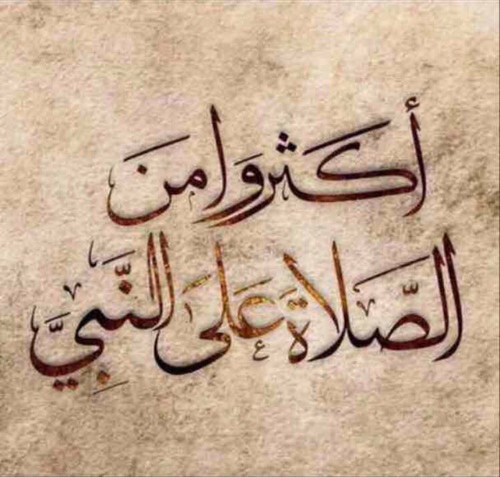 أكثروا منَ
الصَّلاة عَلىَ النَّبيَّ